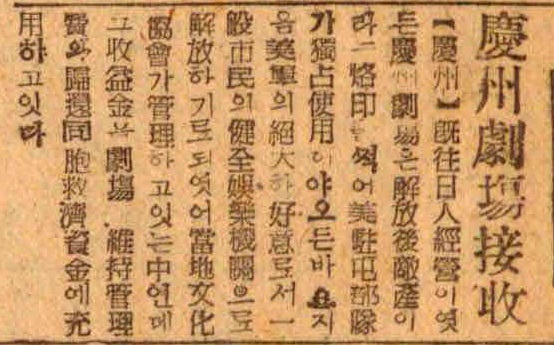 慶州劇場接收
【慶州】旣往日人經營이엿
든慶州劇場은解放後敵産이
라 烙印 찍어美駐屯部隊
가獨占使用이야오든바 지
음美軍의絕大한好意로서一
般市民의健全娛樂機關으로
解放하기로되엿어當地文化
協會가管理하고잇는中인데
그收益金은劇場 維持管理
費와歸還同胞救濟資金에充
用하고잇다